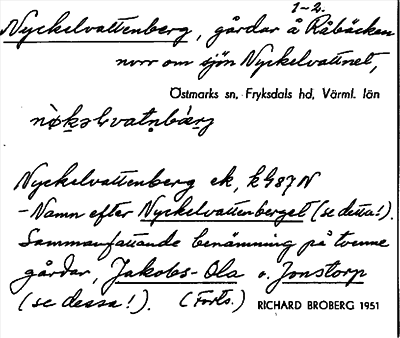 1-2.
Nyckelvattenberg, gårdar å Råbäcken
norr om sjön Nyckelvattnet,
Östmarks sn, Fryksdals hd, Värml. län
Nyckelvattenberg ek, k G87N
- Namn efter Nyckelvattenberget (se detta!).
Sammanfattande benämning på tvenne
gårdar, Jakobs-Ola o. Jonstorp
(se dessa!). (Forts.) RICHARD BROBERG 1951